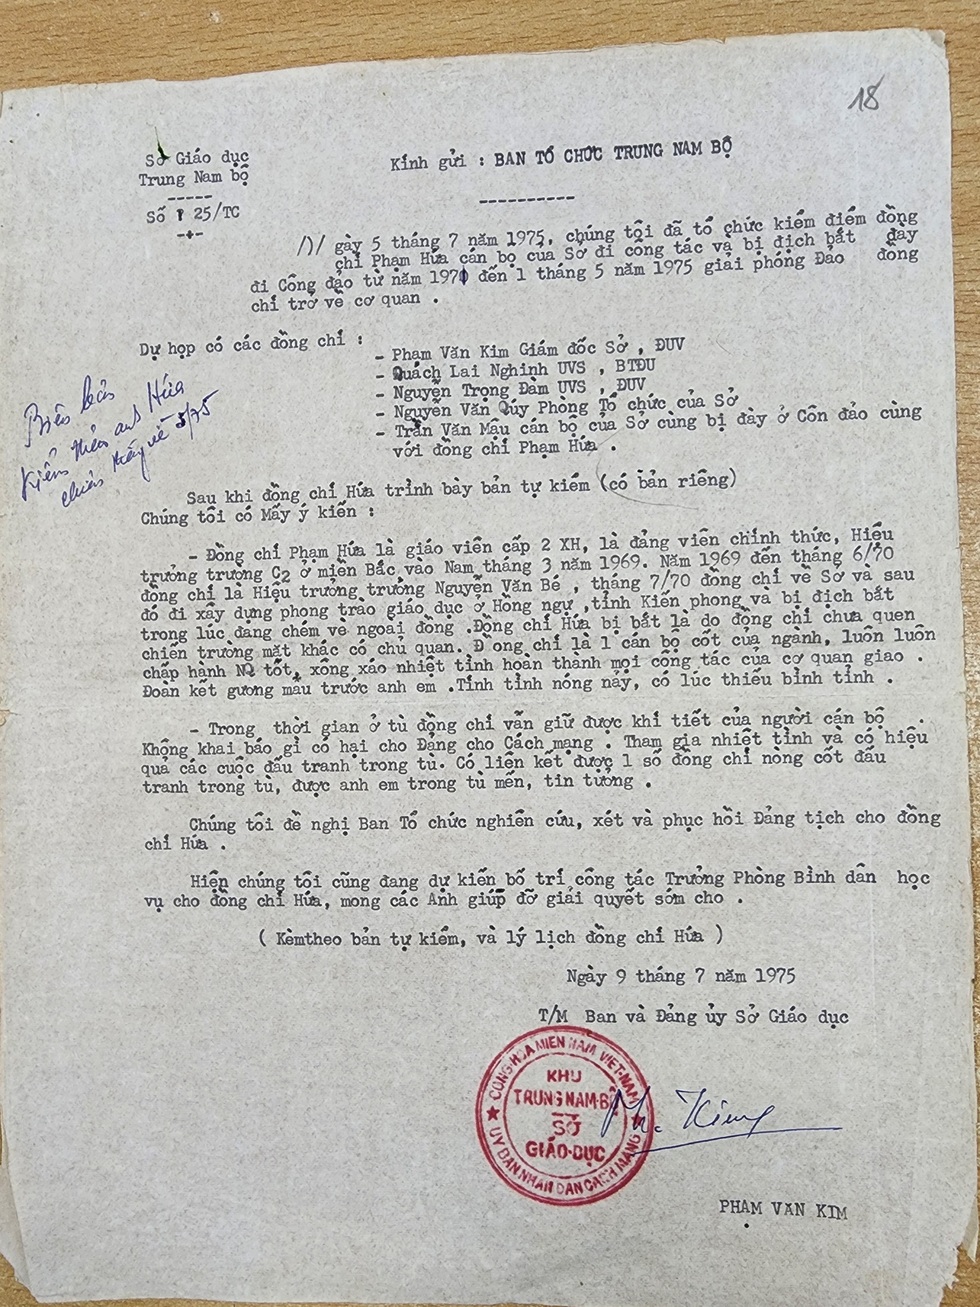 18
Sở Giáo dục
Trung Nam bộ
-----
Số 125/TC
-+-
Kính gửi : BAN TỔ CHỨC TRUNG NAM BỘ
----------
/)/ gày 5 tháng 7 năm 1975, chúng tôi đã tổ chức kiểm điểm đồng
chí Phạm Hứa cán bộ của Sở đi công tác và bị địch bắt đày
đi Công đảo từ năm 1971 đến 1 tháng 5 năm 1975 giải phóng Đảo đồng
chí trở về cơ quan .
Dự họp có các đồng chí :
- Phạm Văn Kim Giám đốc Sở , ĐUV
- Quách Lai Nghinh UVS , BTĐU
- Nguyễn Trọng Đàm UVS , ĐUV
- Nguyễn Văn Qúy Phòng Tổ chức của Sở
- Trần Văn Mậu cán bộ của Sở cùng bị đày ở Côn đảo cùng
với đồng chí Phạm Hứa .
Biên bản
kiểm thảo anh Hứa
chiến thắng về 5/75
Sau khi đồng chí Hứa trình bày bản tự kiểm (có bản riêng)
Chúng tôi có Mấy ý kiến :
- Đồng chí Phạm Hứa là giáo viên cấp 2 XH, là đảng viên chính thức, Hiệu
trưởng trường C2 ở miền Bắc vào Nam tháng 3 năm 1969. Năm 1969 đến tháng 6/70
đồng chí là Hiệu trưởng trường Nguyễn Văn Bé , tháng 7/70 đồng chí về Sở và sau
đó đi xây dựng phong trào giáo dục ở Hồng ngự ,tỉnh Kiến phong và bị địch bắt
trong lúc đang chém vè ngoài đồng .Đồng chí Hứa bị bắt là do đồng chí chưa quen
chiến trường mặt khác có chủ quan. Đ ồng chí là 1 cán bộ cốt của ngành, luôn luôn
chấp hành NQ tốt, xông xáo nhiệt tình hoàn thành mọi công tác của cơ quan giao .
Đoàn kết gương mẫu trước anh em .Tính tình nóng nảy, có lúc thiếu bình tỉnh .
- Trong thời gian ở tù đồng chí vẫn giữ được khí tiết của người cán bộ .
Không khai báo gì có hại cho Đảng cho Cách mạng . Tham gia nhiệt tình và có hiệu
quả các cuộc đấu tranh trong tù. Có liên kết được 1 số đồng chí nòng cốt đấu
tranh trong tù, được anh em trong tù mến, tin tưởng .
Chúng tôi đề nghị Ban Tổ chức nghiên cứu, xét và phục hồi Đảng tịch cho đồng
chí Hứa .
Hiện chúng tôi cũng đang dự kiến bố trí công tác Trưởng Phòng Bình dân học
vụ cho đồng chí Hứa, mong các Anh giúp đỡ giải quyết sớm cho .
( Kèmtheo bản tự kiểm, và lý lịch đồng chí Hứa )
Ngày 9 tháng 7 năm 1975
T/M Ban và Đảng ủy Sở Giáo dục
CỘNG HÒA MIỀN NAM VIỆT-NAM
KHU
TRUNG NAM-BỘ
SỞ
GIÁO-DỤC
ỦY BAN NHÂN DÂN CÁCH MẠNG
Ph. Kim
PHẠM VĂN KIM